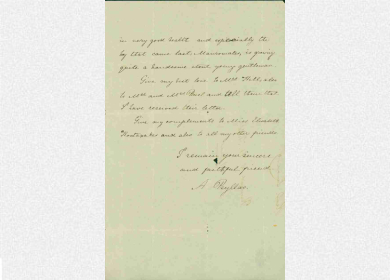 in very good health and especially the
boy that came last. Maximowitz, is going
quite a handsome that young gentleman.
Give my best love to Mrs Hall, also
to Mrs and Miss and tell them that
I have received their letter.
Give my compliments to Miss Elizabeth
and also to all my other friends
I remain your sincere
and faithful friend
A.